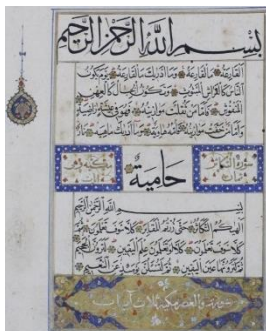 بسم الله الرحمن الرحيم
القارعة ما القارعة وما أدريك ما القارعة يوم يكون
الناس كالفراش المبثوث وتكون الجبال كالعهن
المنفوش فأما من ثقلت موازينه فهو في عيشة راضية
وأما من خفت موازينه فأمه هاوية وما أدريك ماهيه نار
حامية
بسم الله الرحمن الرحيم
ألهيكم التكاثر حتى زرتم المقابر كلا سوف تعلمون ثم
كلا سوف تعلمون كلا لو تعلمون علم اليقين لترون الجحيم
ثم لترونها عين اليقين ثم لتسئلن يومئذ عن النعيم
سورة والعصر مكية ثلاث آيات